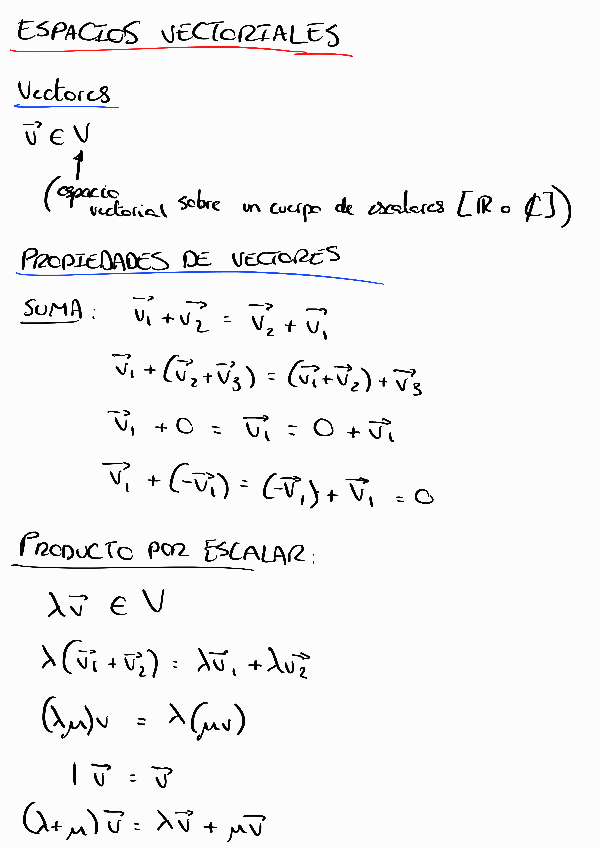 ESPACIOS VECTORIALES
Vectores
v⃗ ∈ V
(espacio vectorial sobre un cuerpo de escalares [ℝ o ℂ])
PROPIEDADES DE VECTORES
SUMA: v⃗₁ + v⃗₂ = v⃗₂ + v⃗₁
v⃗₁ + (v⃗₂ + v⃗₃) = (v⃗₁ + v⃗₂) + v⃗₃
v⃗₁ + 0 = v⃗₁ = 0 + v⃗₁
v⃗₁ + (-v⃗₁) = (-v⃗₁) + v⃗₁ = 0
PRODUCTO POR ESCALAR:
λv⃗ ∈ V
λ(v⃗₁ + v⃗₂) = λv⃗₁ + λv⃗₂
(λμ)v = λ(μv)
1 v⃗ = v⃗
(λ+μ)v⃗ = λv⃗ + μv⃗